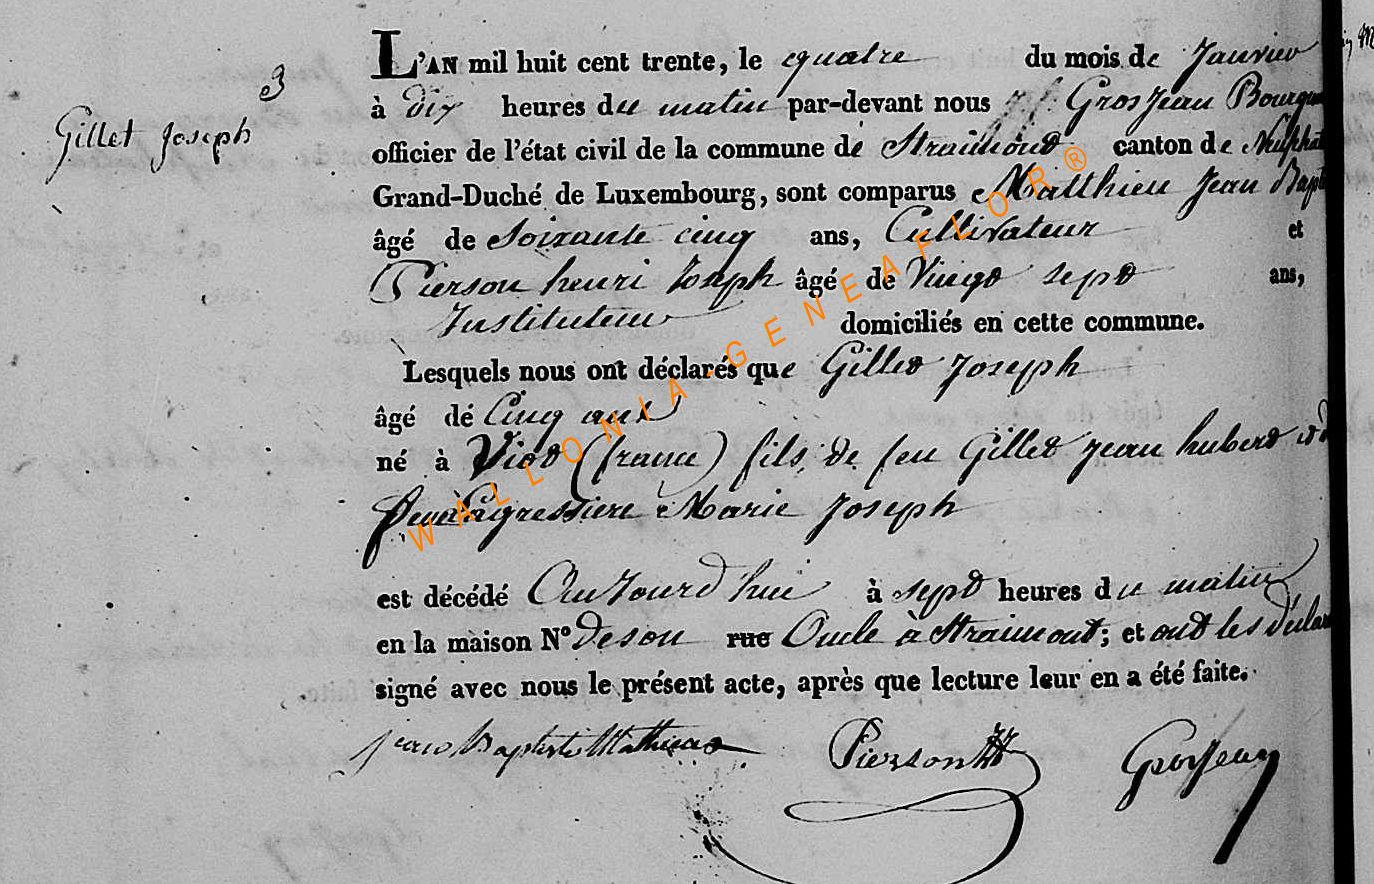 3
Gillet Joseph
L'AN mil huit cent trente, le quatre du mois de Janvier
à dix heures du matin par-devant nous J. f. Grosjean Bourgm
officier de l'état civil de la commune de Straimont canton de Neufchât
Grand-Duché de Luxembourg, sont comparus Matthieu Jean Bapt
âgé de Soixante cinq ans, Cultivateur et
Pierson henri Joseph âgé de Vingt sept ans,
Instituteur domiciliés en cette commune.
Lesquels nous ont déclarés que Gillet Joseph
âgé de Cinq ans
né à (france) fils de feu Gillet Jean hubert et d
Marie Joseph
est décédé Aujourd'hui à sept heures du matin
en la maison N° de son rue Oncle à Straimont; et ont les déclar
signé avec nous le présent acte, après que lecture leur en a été faite.
Jean Baptiste Mathieu Pierson HJ Grosjean
WALLONIA-GENEAFLOR®